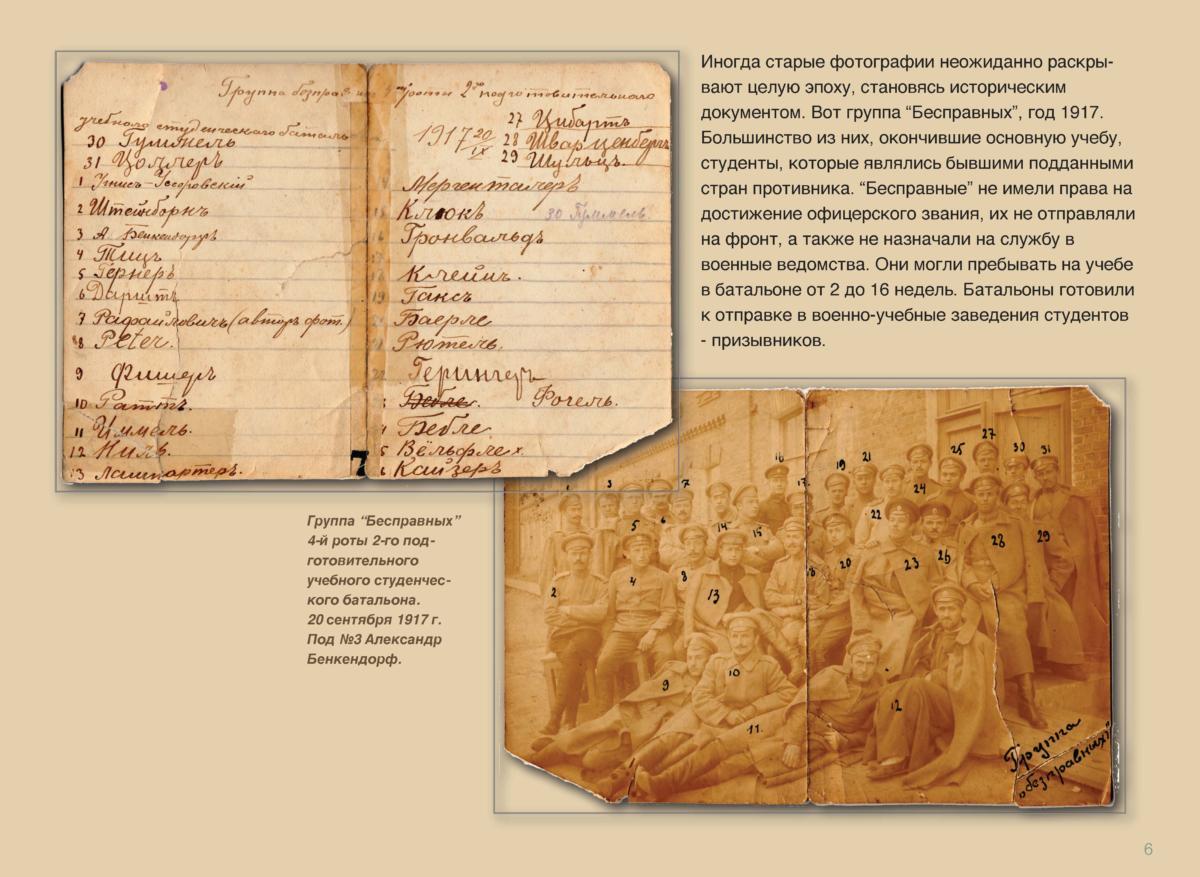 Группа безправных 4 роты 2го подготовительнаго
учебнаго студенческаго батальона
1917 20/IX
27 Цибартъ
28 Шварценбергъ
29 Шульцъ
30 Гуммель
31 Цоллеръ
1
2 Штейнборнъ
3 А. Бенкендорфъ
4 Тицъ
5 Гернеръ
6
7 Рафайловичъ (авторъ фот.)
8 Peter.
9 Фишеръ
10 Раттъ.
11 Иммель.
12
13
Мергенталеръ
Клюкъ 30 Гуммель
Гронвальдъ
17 Клейнъ.
19 Гаксъ
Баерле
Рютель.
22 Герингеръ
Бебле. Фогель.
Бебле
Вёльфле
Кайзеръ
7
Иногда старые фотографии неожиданно раскры-
вают целую эпоху, становясь историческим
документом. Вот группа “Бесправных”, год 1917.
Большинство из них, окончившие основную учебу,
студенты, которые являлись бывшими подданными
стран противника. “Бесправные” не имели права на
достижение офицерского звания, их не отправляли
на фронт, а также не назначали на службу в
военные ведомства. Они могли пребывать на учебе
в батальоне от 2 до 16 недель. Батальоны готовили
к отправке в военно-учебные заведения студентов
- призывников.
Группа “Бесправных”
4-й роты 2-го под-
готовительного
учебного студенчес-
кого батальона.
20 сентября 1917 г.
Под №3 Александр
Бенкендорф.
27
16 19 21 25 30 31
3 7 17 24
5 6 14 15 22 28 29
2 4 8 13 18 20 23 26
9 10 12
11
Группа
„безправныхъ”
6